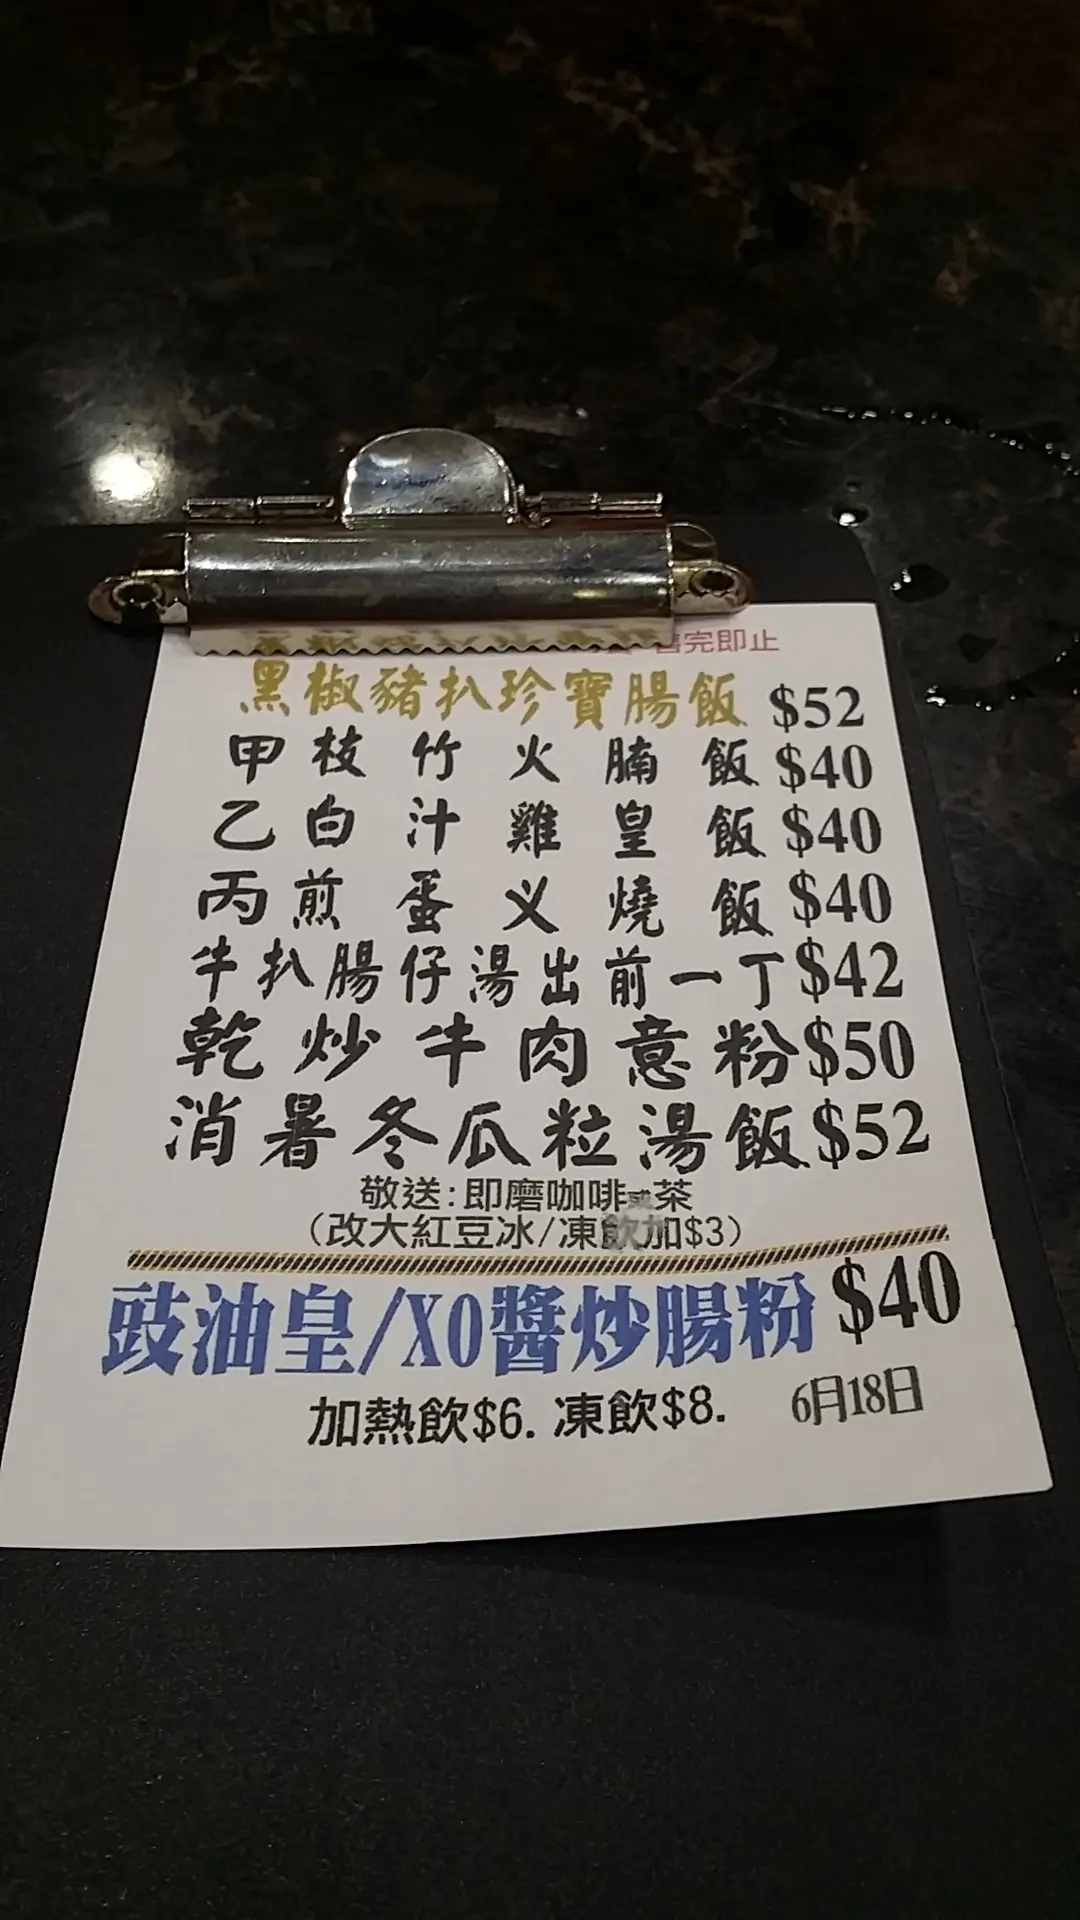 售完即止
黑椒豬扒珍寶腸飯 $52
甲枝竹火腩飯 $40
乙白汁雞皇飯 $40
丙煎蛋义燒飯 $40
牛扒腸仔湯出前一丁 $42
乾炒牛肉意粉 $50
消暑冬瓜粒湯飯 $52
敬送:即磨咖啡或茶
(改大紅豆冰/凍飲加$3)
豉油皇/XO醬炒腸粉 $40
加熱飲$6. 凍飲$8. 6月18日